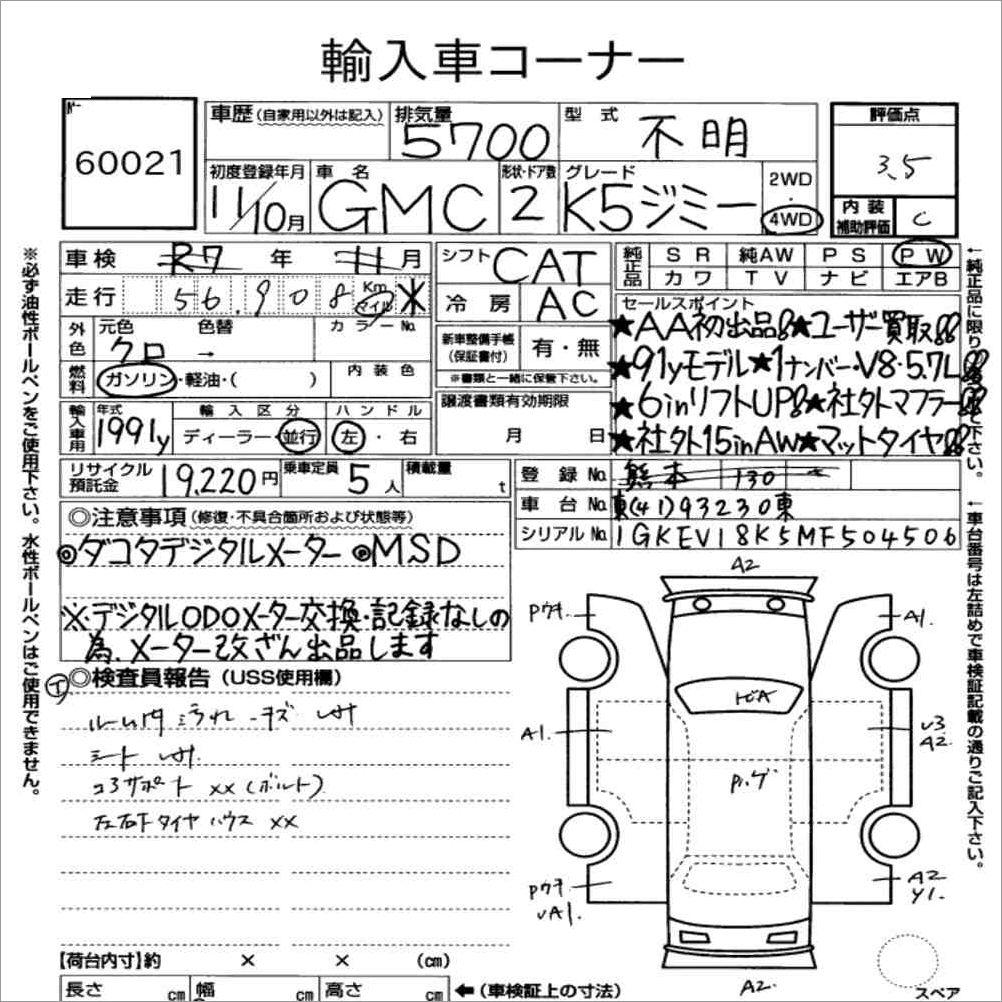 輸入車コーナー
60021
車歴 (自家用以外は記入)
排気量 5700
型式 不明
評価点 3.5
初度登録年月 11/10月
車名 GMC
形状・ドア数 2
グレード K5ジミー
2WD・4WD
内装補助評価 C
車検 R7年11月
シフト CAT
純正品 SR 純AW PS PW
カワ TV ナビ エアB
走行 56,908 Km マイル ※
冷房 AC
セールスポイント
★AA初出品!!★ユーザー買取!!
外色 元色 クロ → 色替 カラーNo.
新車整備手帳(保証書付) 有・無
※書類と一緒に保管下さい。
★91yモデル★1ナンバー・V8・5.7L!!
燃料 ガソリン・軽油・( ) 内装色
譲渡書類有効期限 月 日
★6inリフトUP!!★社外マフラー!!
輸入車用 年式 1991y 輸入区分 ディーラー・並行 ハンドル 左・右
★社外15inAW★マットタイヤ!!
リサイクル預託金 19,220円 乗車定員 5人 積載量 t
登録No. 熊本 130 さ
車台No. 東(41)93230東
シリアルNo. 1GKEV18K5MF504506
◎注意事項 (修復・不具合箇所および状態等)
◎ダコタデジタルメーター ◎MSD
※デジタルODOメーター交換・記録なしの
為、メーター改ざん出品します
◎検査員報告 (USS使用欄)
ルーム内 汚れ キズ
シート
コアサポート ××(ボルト)
左右下タイヤハウス ××
A2
Pウキ
A1.
A1.
ヒビA
U3
A2
P.ゲ
Pウキ
UA1.
A2
Y1.
A2
【荷台内寸】約 × × (cm)
長さ cm 幅 cm 高さ cm ←(車検証上の寸法)
スペア
※必ず油性ボールペンをご使用下さい。水性ボールペンはご使用できません。
←純正品に限り
で下さい。
←車台番号は左詰めで車検証記載の通りご記入下さい。